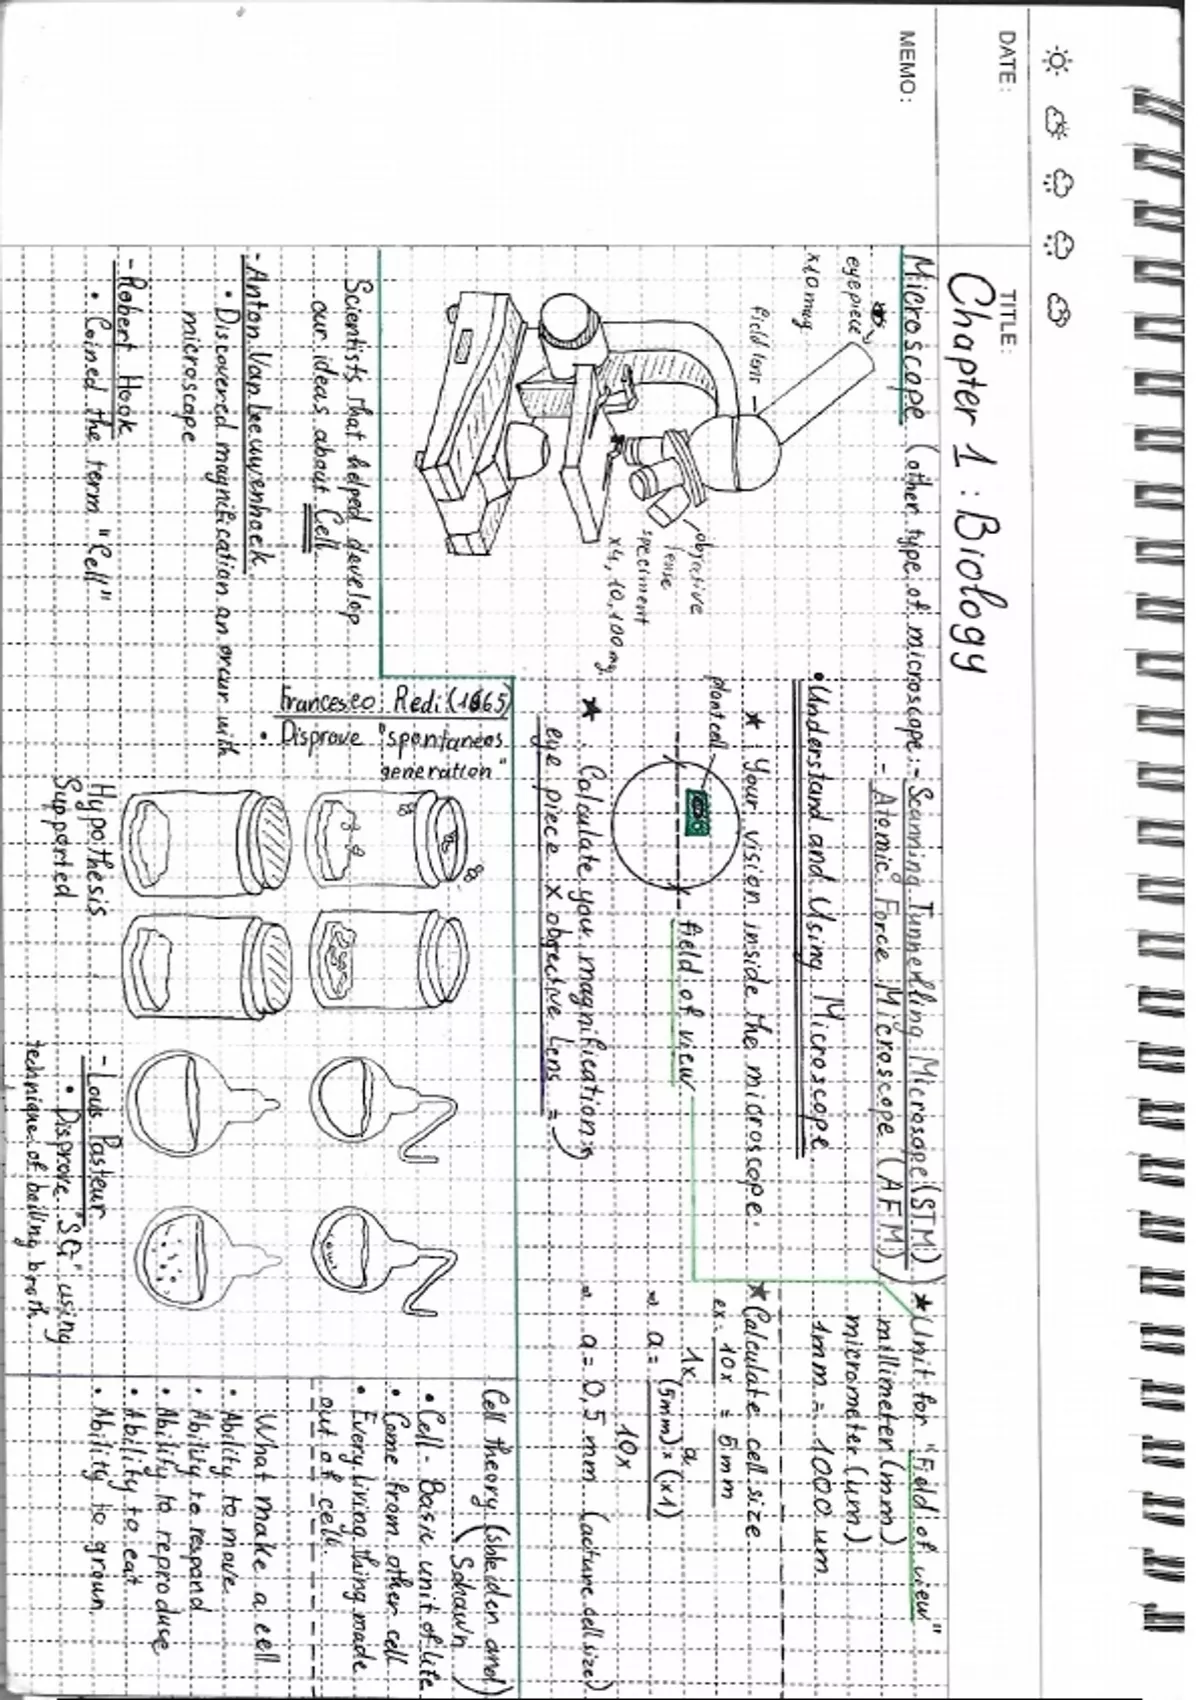 DATE:
TITLE:
Chapter 1 : Biology
MEMO:
Microscope (other type of microscope: - Scanning Tunnelling Microsope (STM)
- Atomic Force Microscope (AFM))
eyepiece
x10 mag
field lens
objective
lense
speciment
x4, 10, 100 mg
• Understand and Using Microscope
★ Your vision inside the microscope.
plant cell
field of view
★ Calculate you magnification
eye piece x objective Lens =
★ Unit for "Field of view"
millimeter (mm)
micrometer (µm)
1mm = 1000 µm
★ Calculate cell size
ex: 10x = 5mm
1x a
a = (5mm) x (x1)
10x
a = 0,5 mm (acture cell size)
Scientists that helped develop
our ideas about Cell
- Anton Van Leeuwenhoek
• Discovered magnification an occur with
microscope
- Robert Hook
• Coined the term "Cell"
Francesco Redi (1665)
• Disprove "spontaneos
generation"
Hypothesis
Supported
- Lous Pasteur
• Disprove "SG" using
technique of boiling broth
Cell theory (Shleiden and
Schawn)
• Cell - Basic unit of life
• Come from other cell
• Every living thing made
out of cell.
What make a cell
• Ability to move
• Ability to respond
• Ability to reproduce
• Ability to eat
• Ability to grown